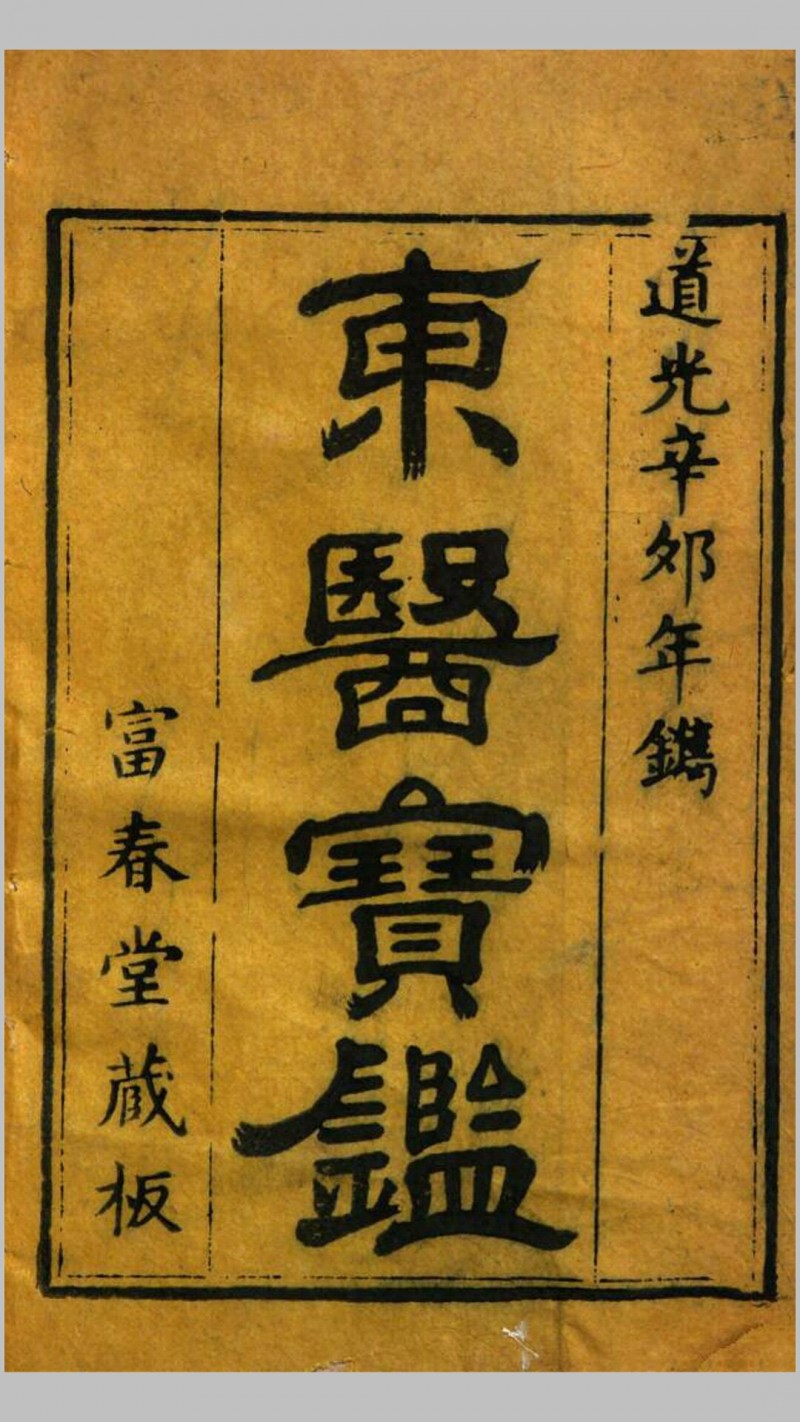 道光辛卯年鐫
東醫寶鑑
富春堂蔵板